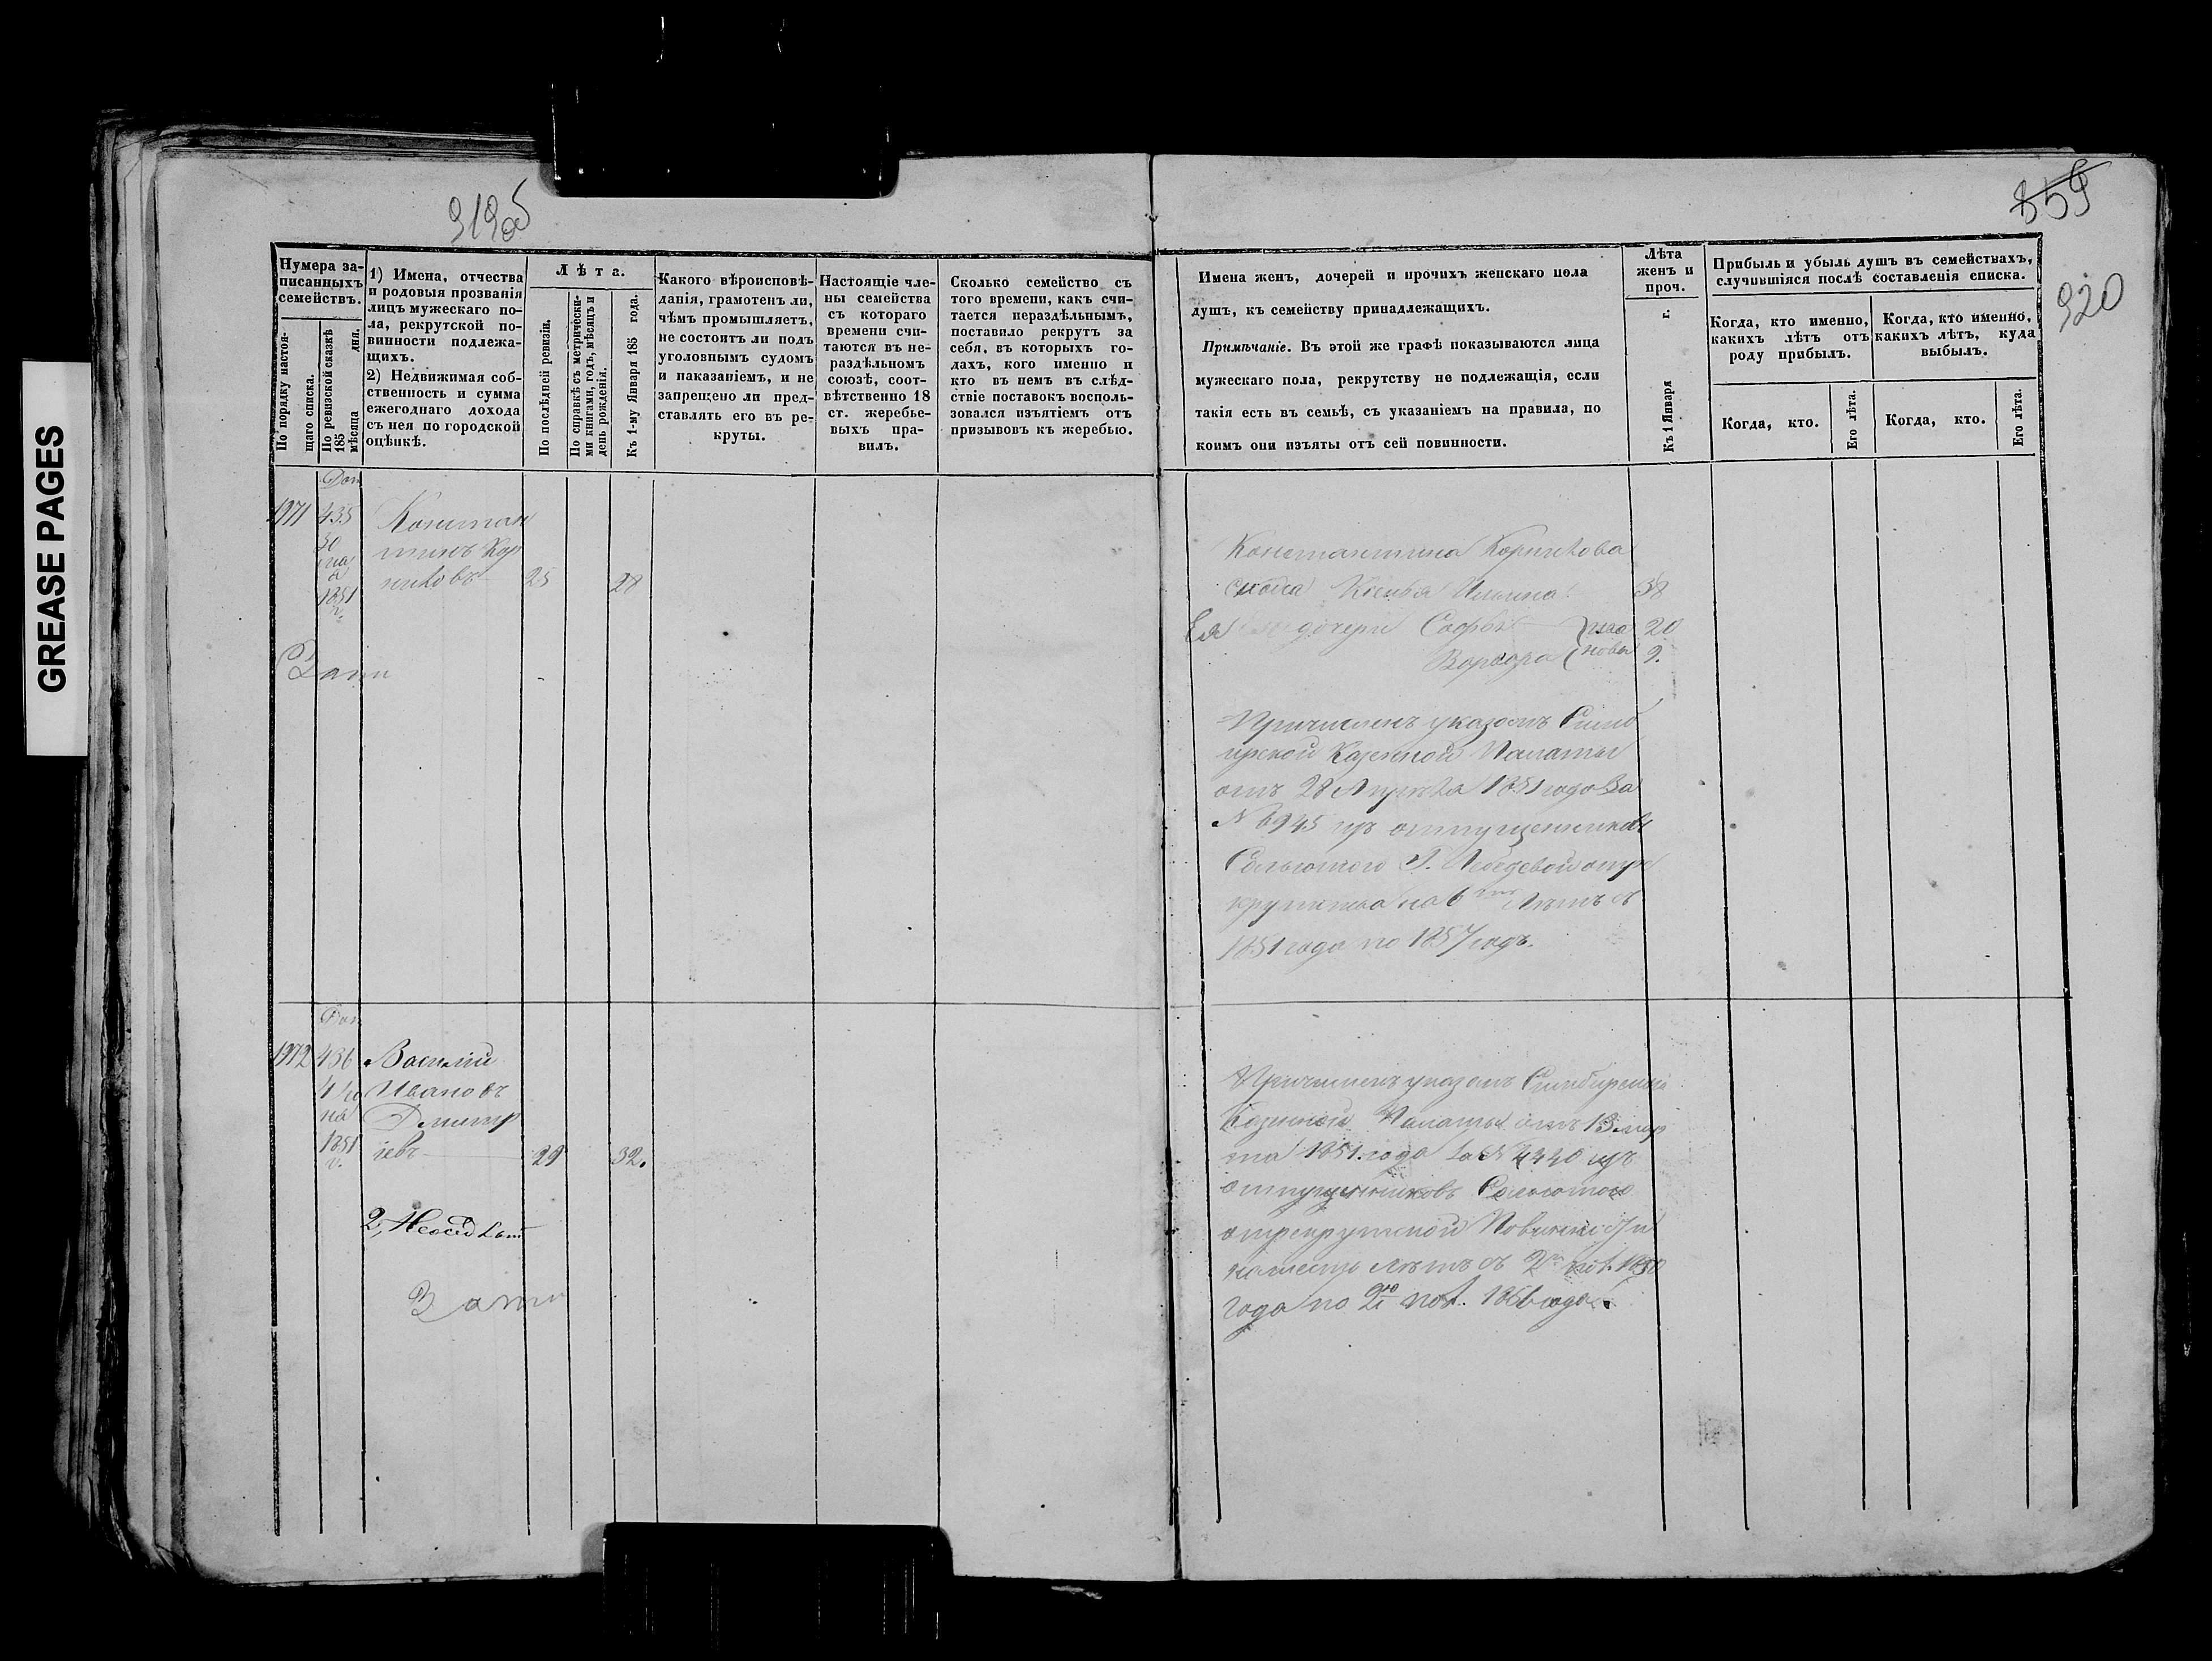 GREASE PAGES
319об
859
320
Нумера за-
писанныхъ
семействъ.
По порядку настоя-
щаго списка.
По ревизской сказкѣ
185 мѣсяца дня.
1) Имена, отчества
и родовыя прозванія
лицъ мужескаго по-
ла, рекрутской по-
винности подлежа-
щихъ.
2) Недвижимая соб-
ственность и сумма
ежегоднаго дохода
съ нея по городской
оцѣнкѣ.
Лѣта.
По послѣдней ревизіи.
По справкѣ съ метрически-
ми книгами, годъ, мѣсяцъ и
день рожденія.
Къ 1-му Января 185 года.
Какого вѣроисповѣ-
данія, грамотенъ ли,
чѣмъ промышляетъ,
не состоитъ ли подъ
уголовнымъ судомъ
и наказаніемъ, и не
запрещено ли пред-
ставлять его въ ре-
круты.
Настоящіе чле-
ны семейства
съ котораго
времени счи-
таются въ не-
раздѣльномъ
союзѣ, соот-
вѣтственно 18
ст. жеребье-
выхъ пра-
вилъ.
Сколько семейство съ
того времени, какъ счи-
тается нераздѣльнымъ,
поставило рекрутъ за
себя, въ которыхъ го-
дахъ, кого именно и
кто въ немъ въ слѣд-
ствіе поставокъ восполь-
зовался изъятіемъ отъ
призывовъ къ жеребью.
Имена женъ, дочерей и прочихъ женскаго пола
душъ, къ семейству принадлежащихъ.
Примѣчаніе. Въ этой же графѣ показываются лица
мужескаго пола, рекрутству не подлежащія, если
такія есть въ семьѣ, съ указаніемъ на правила, по
коимъ они изъяты отъ сей повинности.
Лѣта
женъ и
проч.
Къ 1 Января г.
Прибыль и убыль душъ въ семействахъ,
случившіяся послѣ составленія списка.
Когда, кто именно,
какихъ лѣтъ отъ
роду прибылъ.
Когда, кто именно,
какихъ лѣтъ, куда
выбылъ.
Когда, кто.
Его лѣта.
Когда, кто.
Его лѣта.
Доп
1971 435 Констан
30 тинъ Кор
мая никовъ 25 28
1851
г.
Константина Корникова
Ксенья Ильина 38
Ея дочери Софья Ива 20
Варвара новы 9.
Причисленъ указомъ Симб
ирской Казенной Палаты
отъ 28 Апрѣля 1851 года за
№ 6945 изъ отпущенниковъ
Сольготою Г. Лебедевой отре
крутства на 6 лѣтъ съ
1851 года по 1857 годъ.
Доп
1972 436 Василій
4 Iю Ивановъ
на Дмитр
1851 іевъ 29 32.
г.
2,
Причисленъ указомъ Симбирской
Казенной Палаты отъ 13 мар
та 1851 года за № 4440 изъ
отпущенниковъ Сольготою
отрекрутской Повинности
нашесть лѣтъ съ 2го 1850
года по 2го 1856 года.